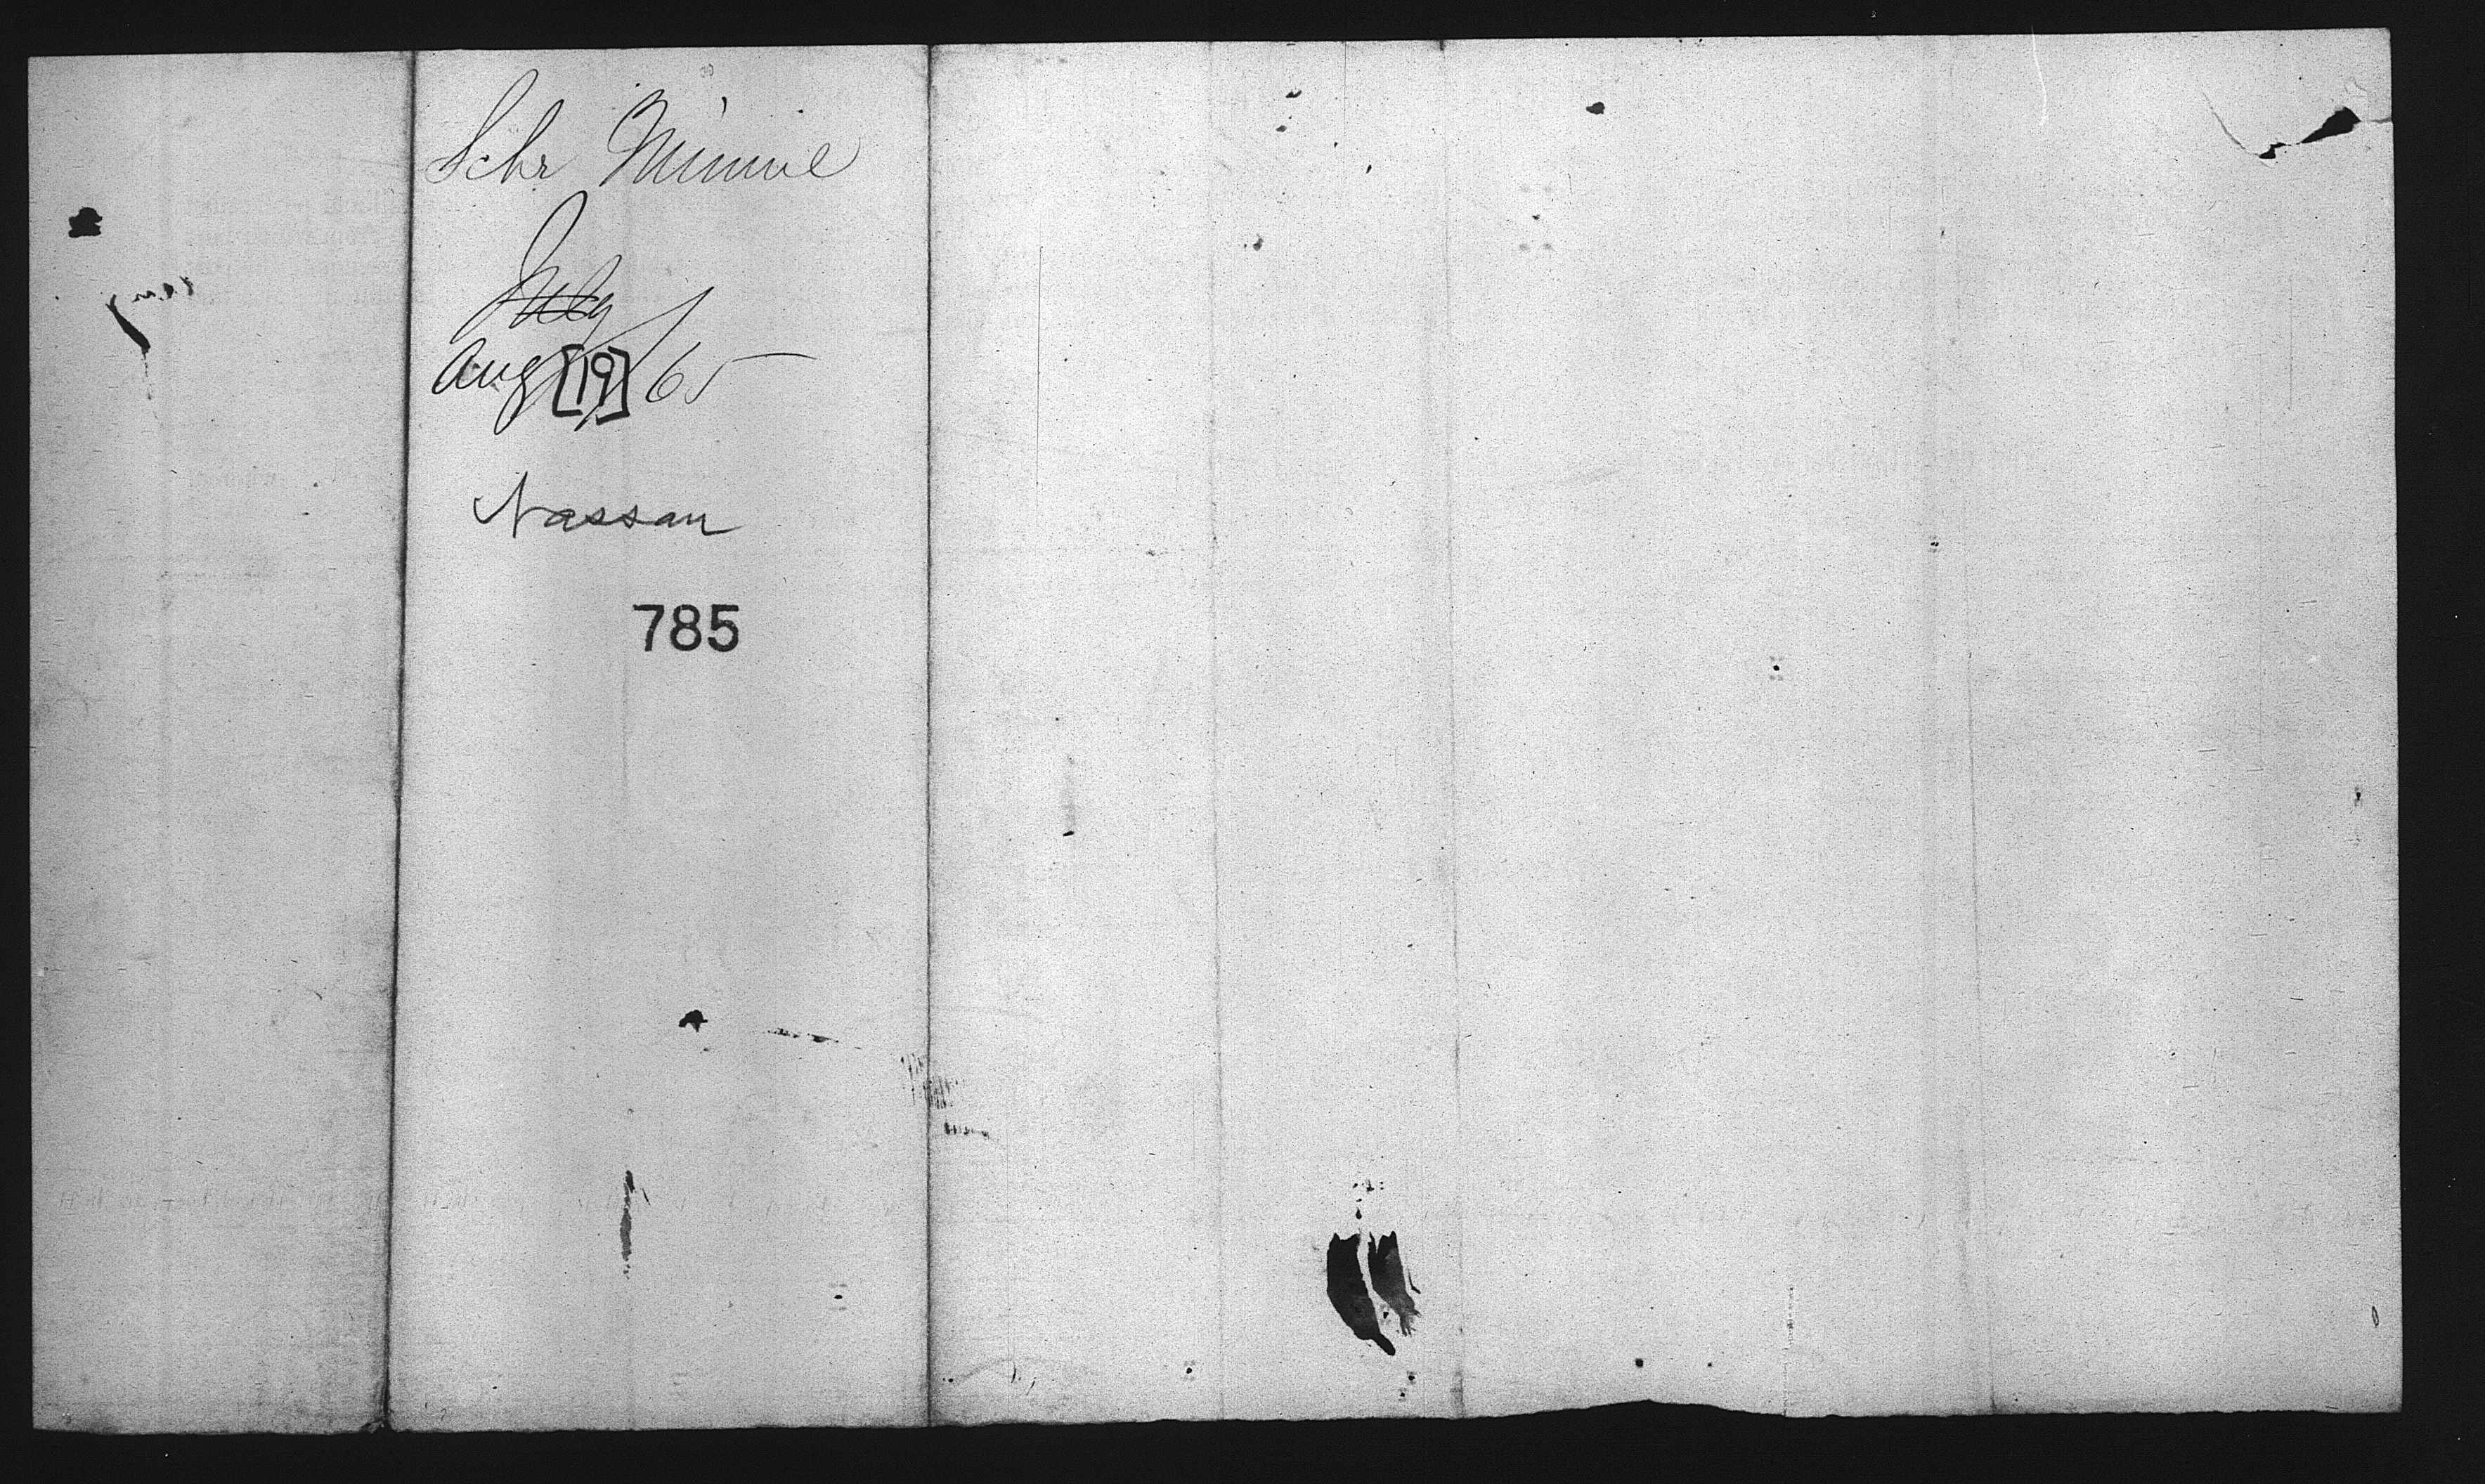 Schr Minnie
July
Aug [19] 65
Nassau
785